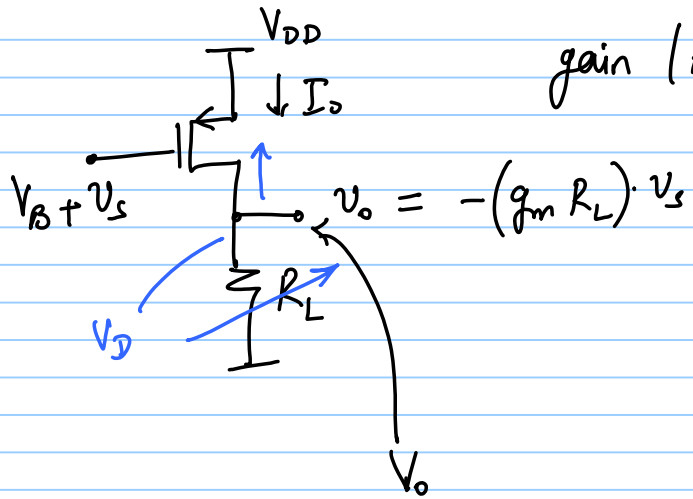 V_DD
gain (
↓ I_o
V_B + v_s
v_o = -(g_m R_L)· v_s
R_L
V_D
V_o